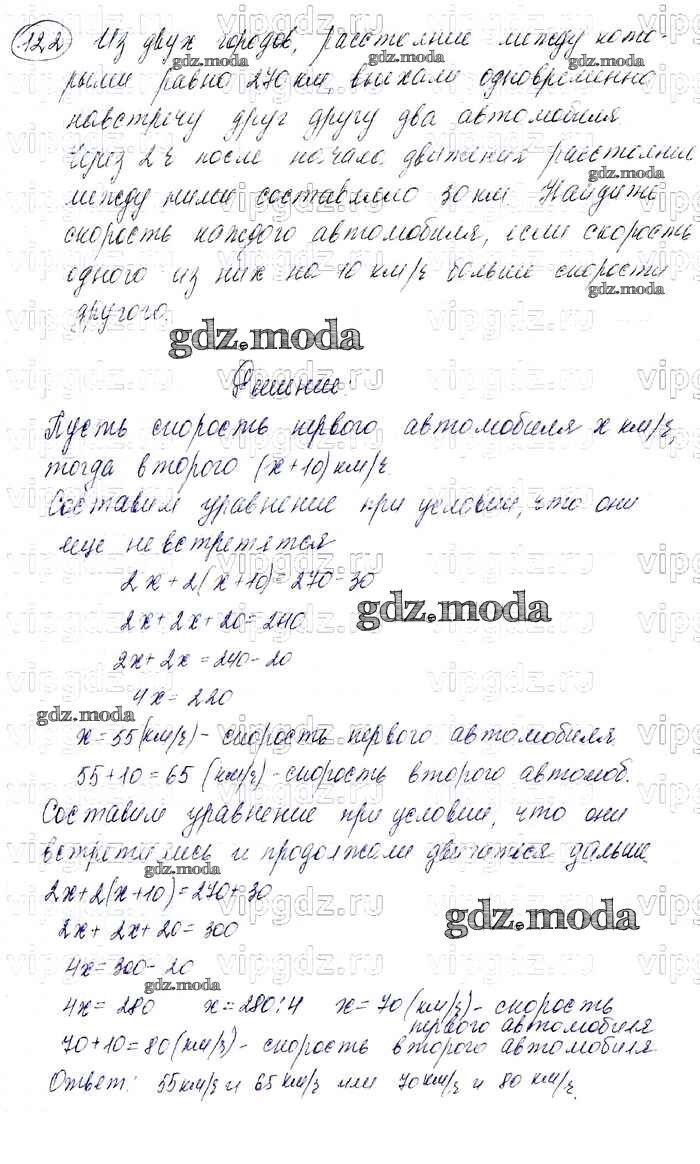 122 Из двух городов, расстояние между кото-
рыми равно 270 км, выехали одновременно
навстречу друг другу два автомобиля.
Через 2 ч после начала движения расстояние
между ними составляло 30 км. Найдите
скорость каждого автомобиля, если скорость
одного из них на 10 км/ч больше скорости
другого.
gdz.moda
Решение:
Пусть скорость первого автомобиля х км/ч,
тогда второго (х+10) км/ч.
Составим уравнение при условии, что они
еще не встретятся
2х+2(х+10)=270-30
gdz.moda
2х+2х+20=240
2х+2х=240-20
4х=220
gdz.moda
х=55(км/ч)-скорость первого автомобиля
55+10=65 (км/ч)-скорость второго автомоб.
Составим уравнение при условии, что они
встретились и продолжали двигаться дальше
2х+2(х+10)=270+30
2х+2х+20=300
4х=300-20
4х=280 х=280:4 х=70(км/ч)-скорость
первого автомобиля
70+10=80(км/ч)-скорость второго автомобиля
Ответ: 55км/ч и 65 км/ч или 70км/ч и 80 км/ч.